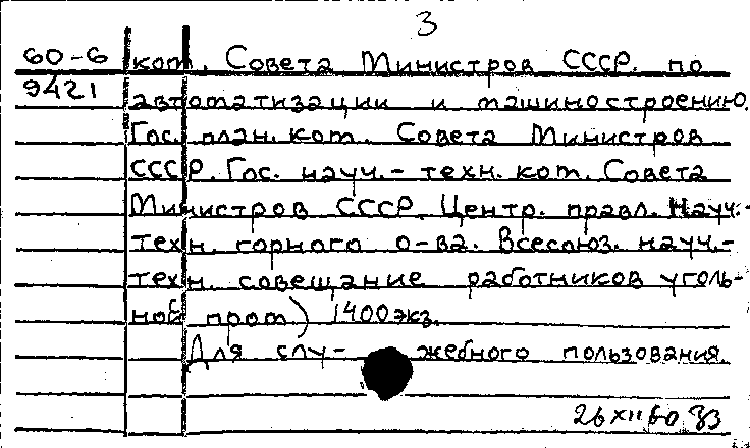 3
60-6 ком. Совета Министров СССР. по
9421 автоматизации и машиностроению.
Гос. план. ком. Совета Министров
СССР. Гос. науч.- техн. ком. Совета
Министров СССР. Центр. правл. Науч.-
техн. горного о-ва. Всесоюз. науч.-
техн. совещание работников уголь-
ной пром) 1400 экз.
Для слу- жебного пользования.
26 XII 60